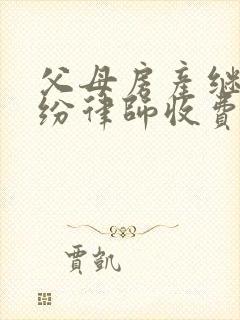 父母房產继
纷律師收費
賈凱